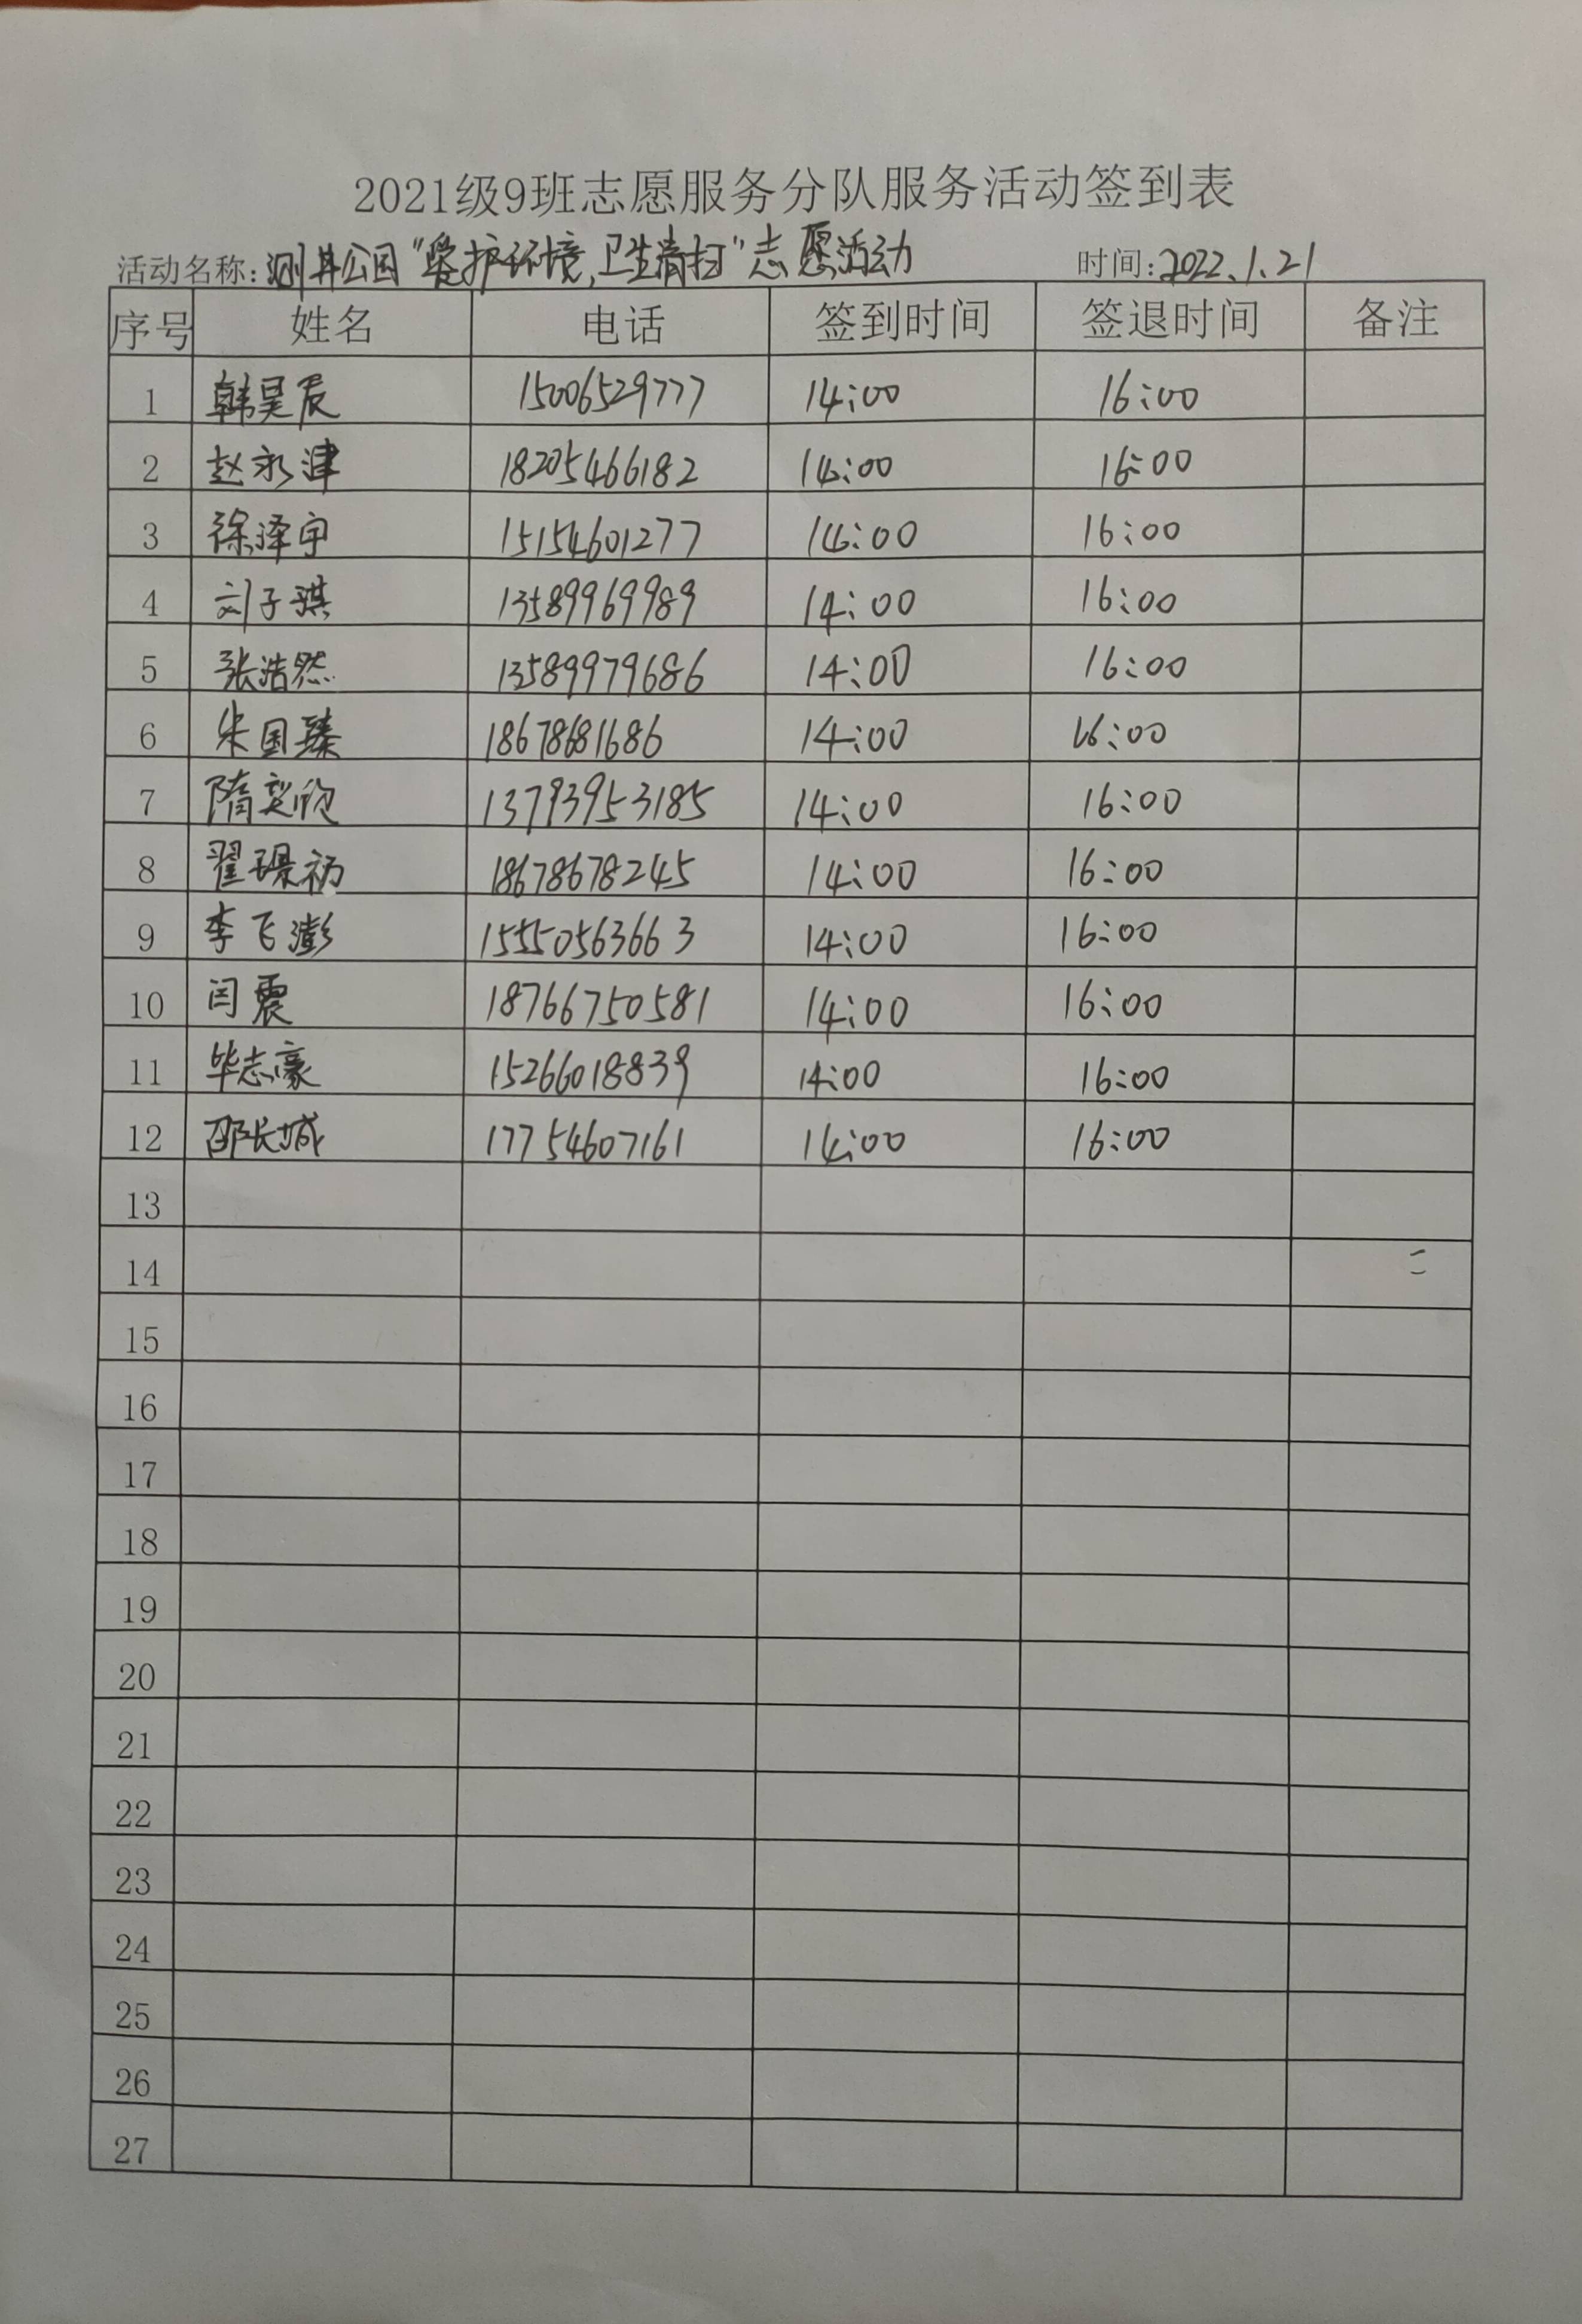 2021级9班志愿服务分队服务活动签到表
活动名称:测井公园"爱护环境,卫生清扫"志愿活动 时间:2022.1.21
序号 姓名 电话 签到时间 签退时间 备注
1 韩昊辰 15006529777 14:00 16:00
2 赵永津 18205466182 14:00 16:00
3 徐泽宇 15154601277 14:00 16:00
4 刘子琪 13589969989 14:00 16:00
5 张浩然 13589979686 14:00 16:00
6 朱国臻 18678681686 14:00 16:00
7 隋奕欣 13793953185 14:00 16:00
8 翟璟初 18678678245 14:00 16:00
9 李飞澎 15550563663 14:00 16:00
10 闫震 18766750581 14:00 16:00
11 毕志豪 15266018839 14:00 16:00
12 邵长城 17754607161 14:00 16:00
13
14
15
16
17
18
19
20
21
22
23
24
25
26
27